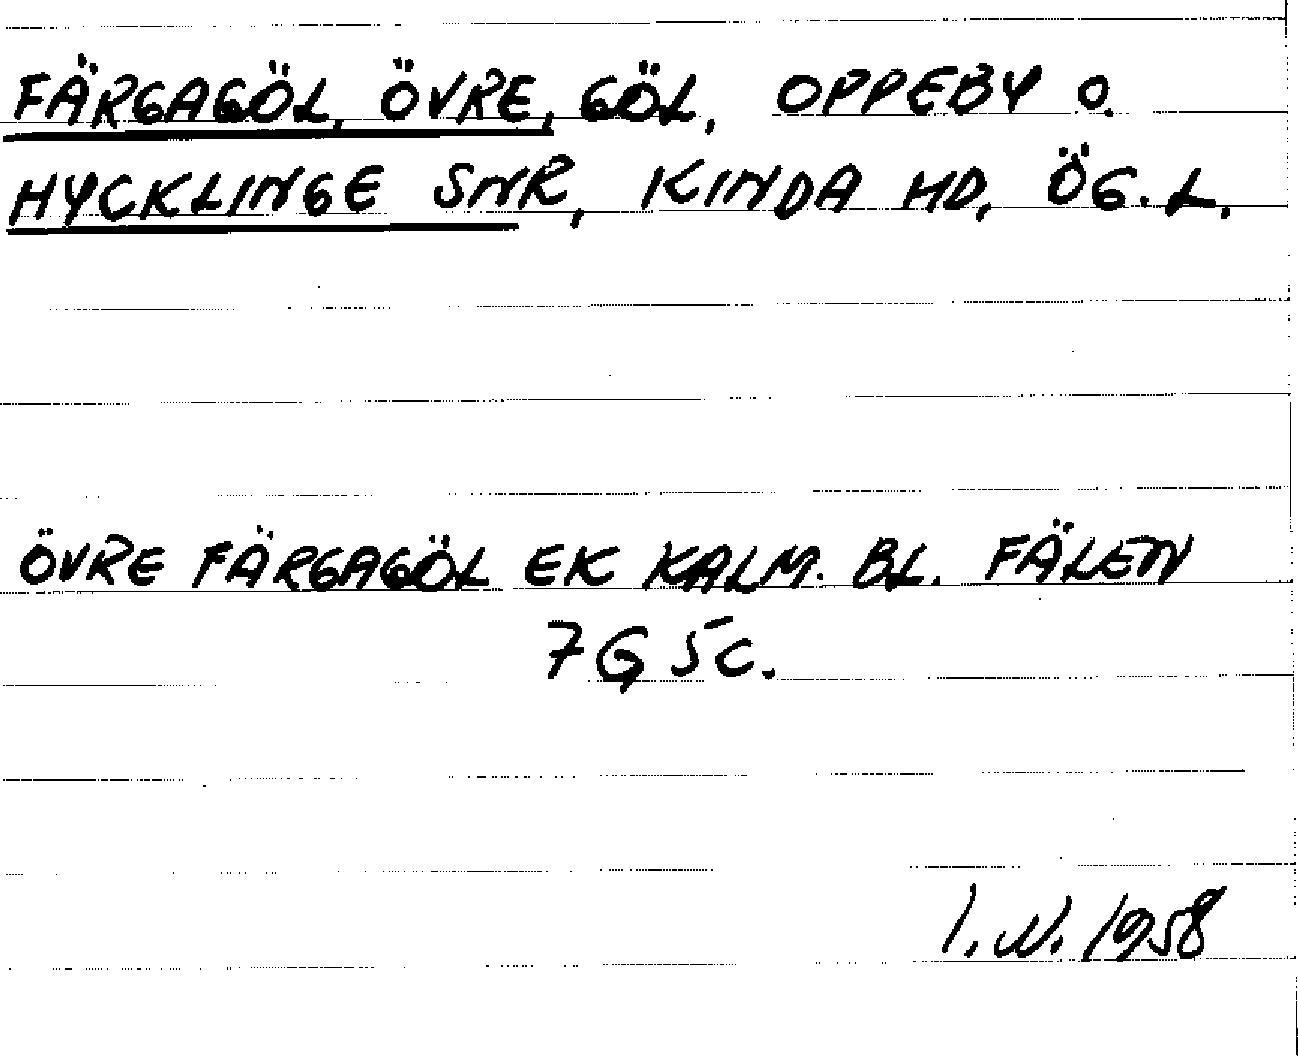 FÄRGAGÖL, ÖVRE, GÖL, OPPEBY O.
HYCKLINGE SNR, KINDA HD, ÖG.L.
ÖVRE FÄRGAGÖL EK KALM. BL. FÄLEN
7G 5c.
I.N. 1958